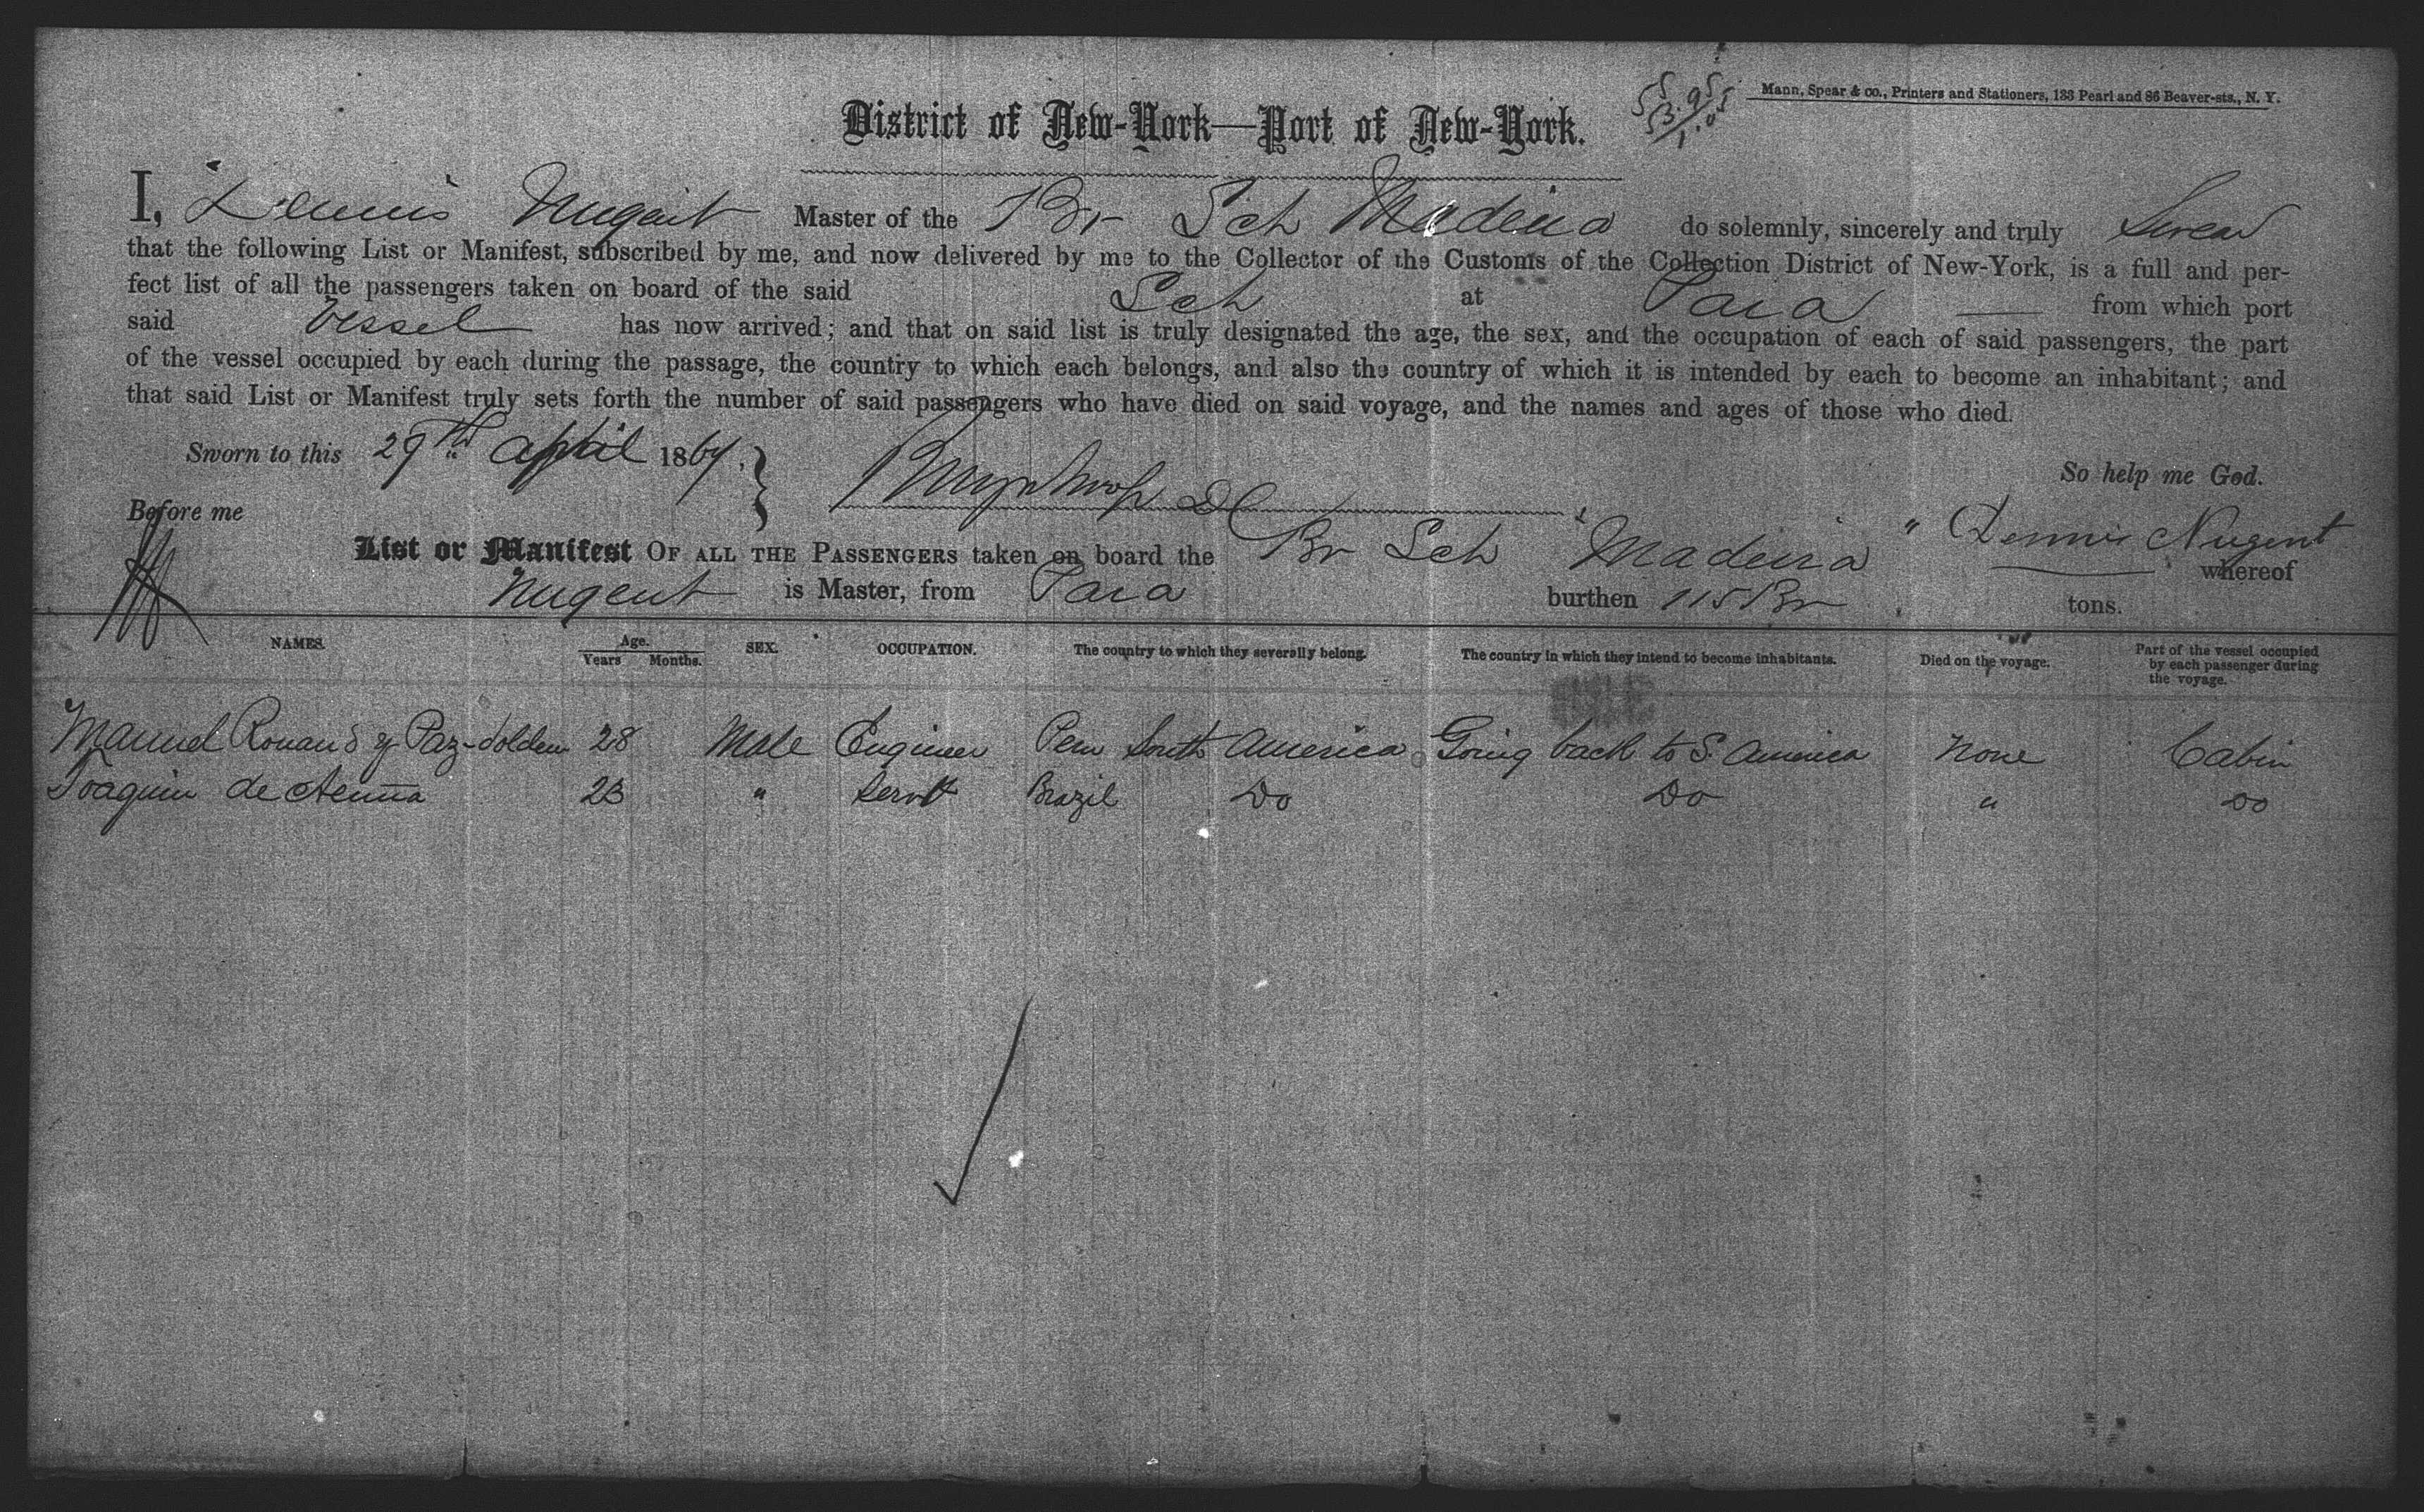 Mann, Spear & co., Printers and Stationers, 133 Pearl and 86 Beaver-sts., N. Y.
District of New-York—Port of New-York.
I, Dennis Nugent Master of the Br Sch Madeira do solemnly, sincerely and truly Swear
that the following List or Manifest, subscribed by me, and now delivered by me to the Collector of the Customs of the Collection District of New-York, is a full and per-
fect list of all the passengers taken on board of the said Sch at Para from which port
said Vessel has now arrived; and that on said list is truly designated the age, the sex, and the occupation of each of said passengers, the part
of the vessel occupied by each during the passage, the country to which each belongs, and also the country of which it is intended by each to become an inhabitant; and
that said List or Manifest truly sets forth the number of said passengers who have died on said voyage, and the names and ages of those who died.
Sworn to this 29th April 1864. So help me God.
Before me
Dennis Nugent
List or Manifest OF ALL THE PASSENGERS taken on board the Br Sch "Madeira" whereof
Nugent is Master, from Para burthen 115 Br tons.
NAMES. Age. Years Months. SEX. OCCUPATION. The country to which they severally belong. The country in which they intend to become inhabitants. Died on the voyage. Part of the vessel occupied by each passenger during the voyage.
Manuel y Paz-Soldan 28 Male Engineer Peru South America Going back to S. America None Cabin
Joaquim de 23 " Servt Brazil Do Do " Do